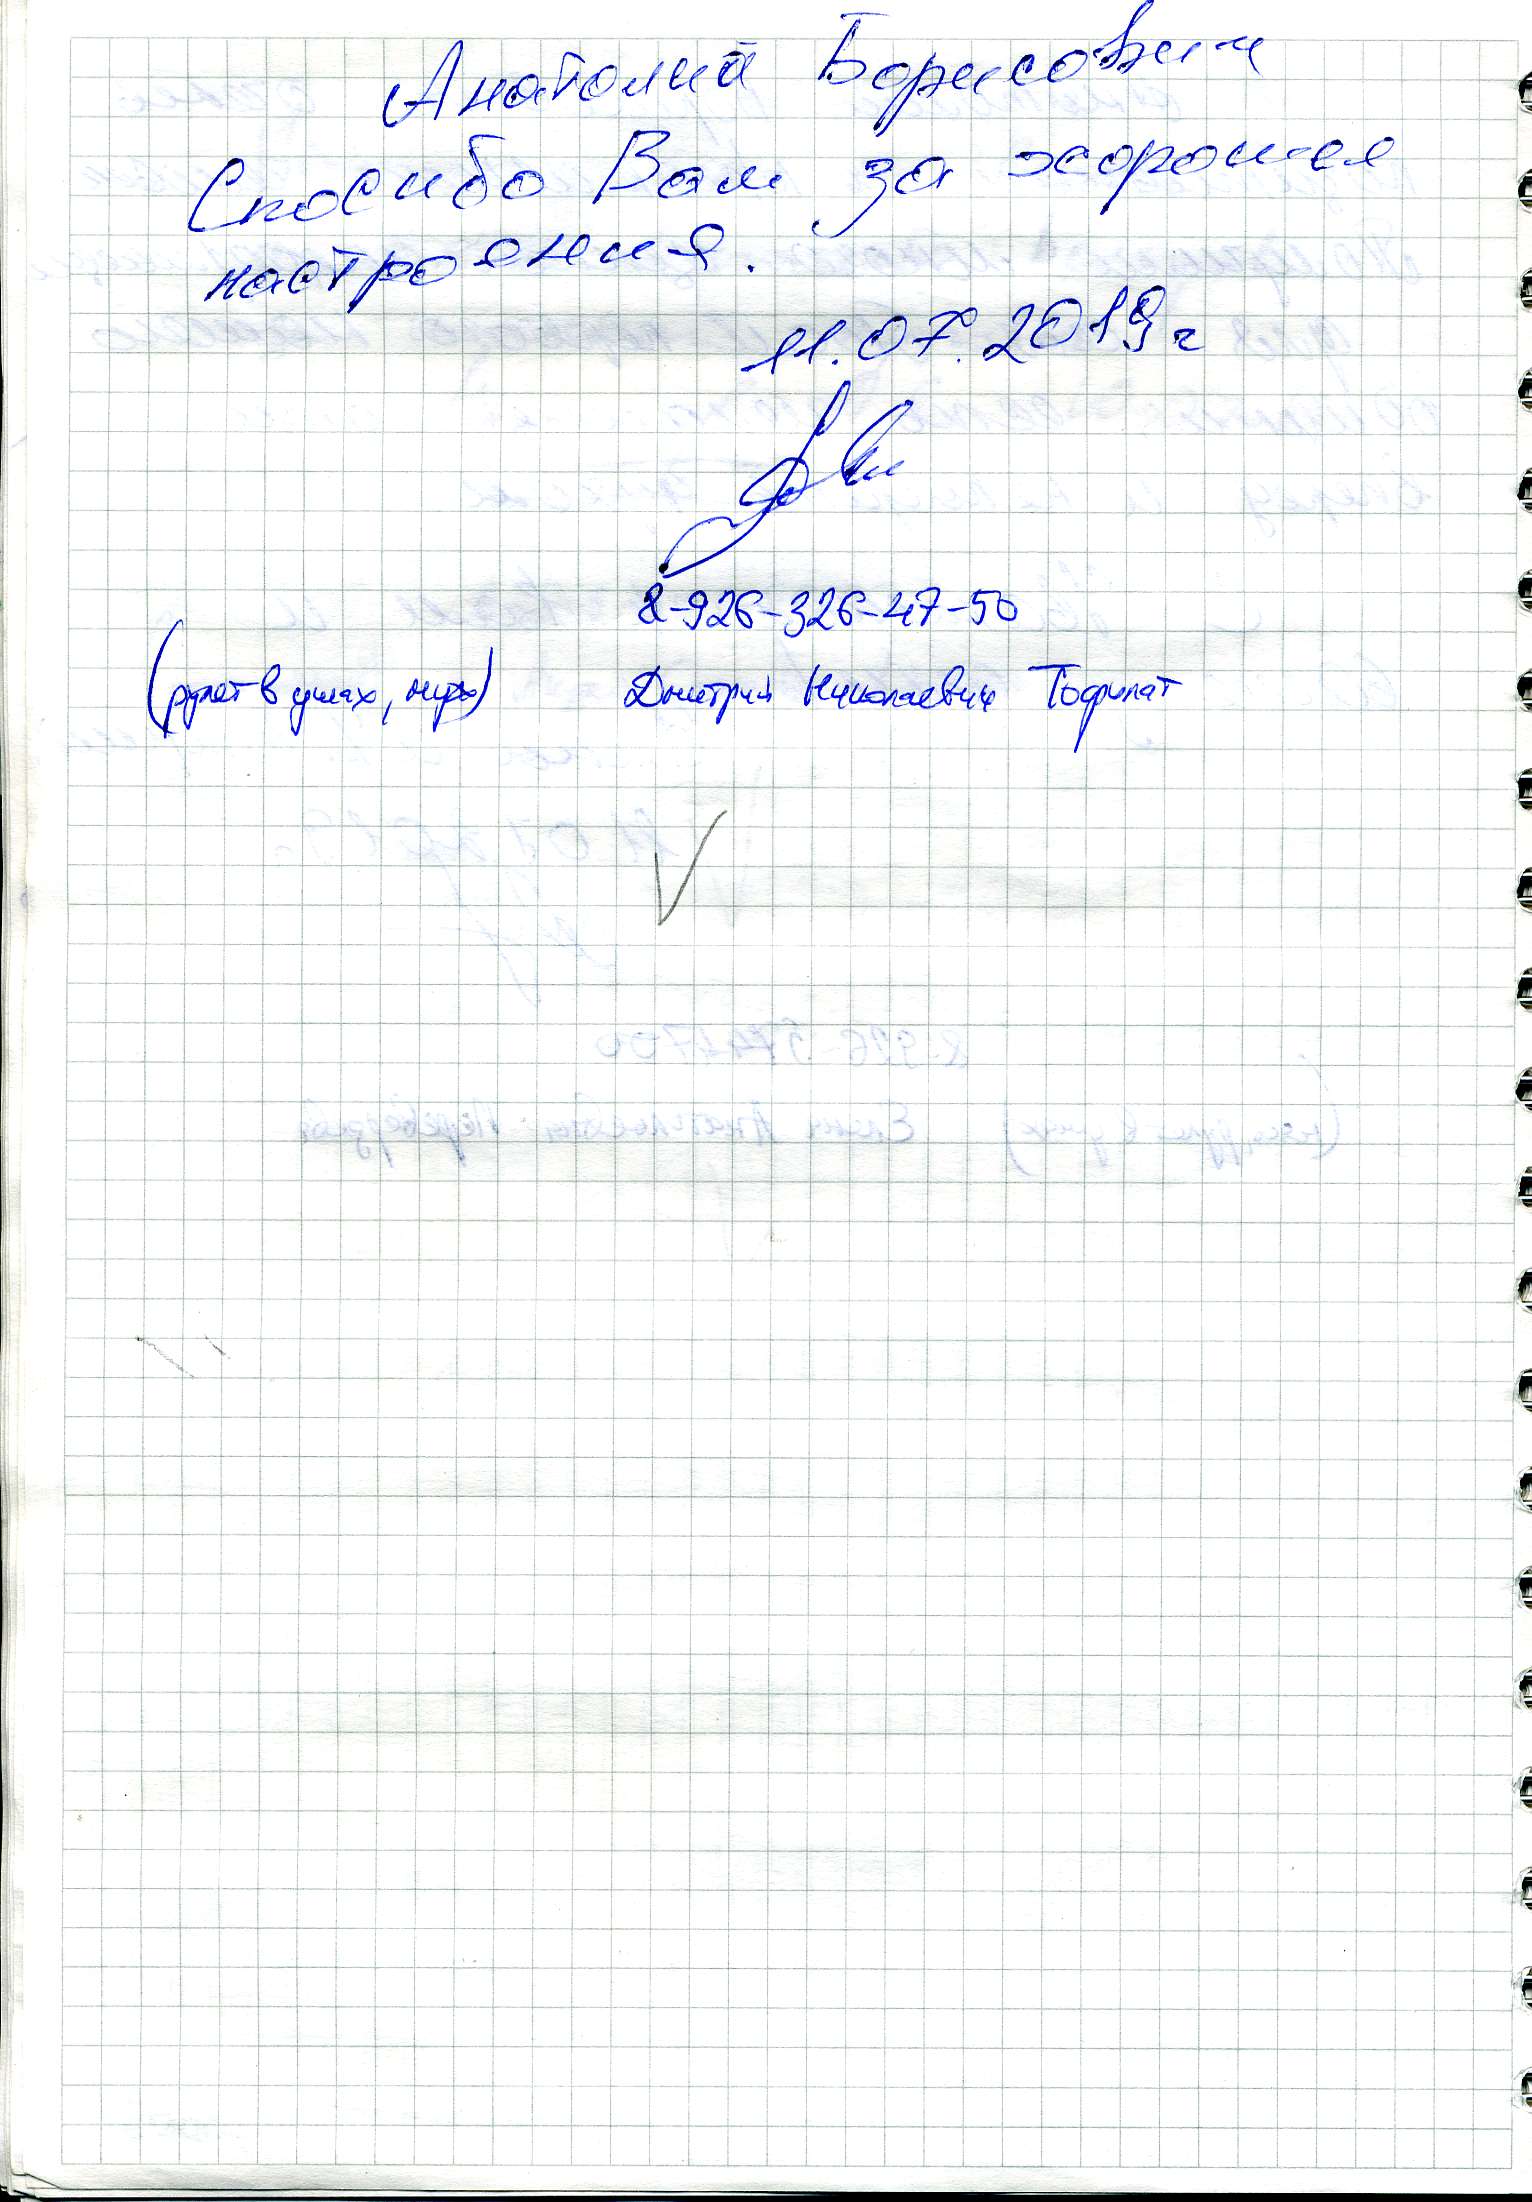 Анатолий Борисович
Спосибо Вам за хорошея
настроения.
11.07.2019г
8-926-326-47-50
в ушах, Дмитрий Николаевич Тофилат